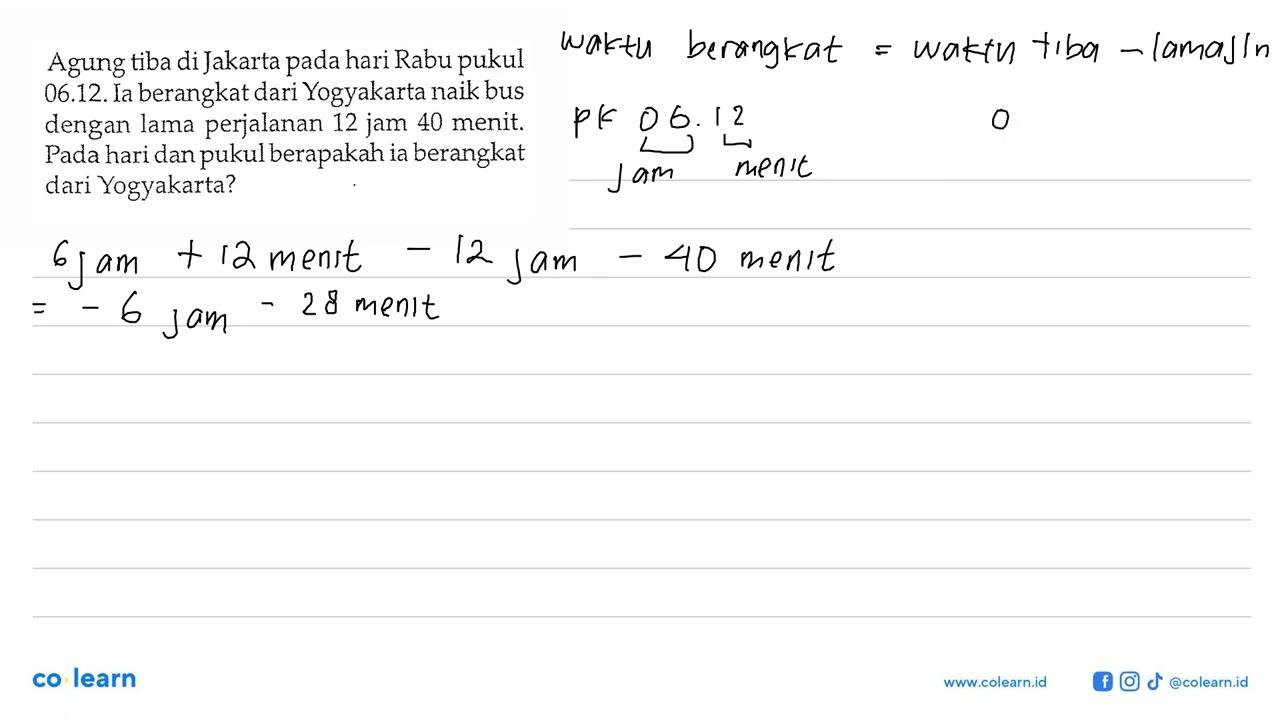 Agung tiba di Jakarta pada hari Rabu pukul
06.12. Ia berangkat dari Yogyakarta naik bus
dengan lama perjalanan 12 jam 40 menit.
Pada hari dan pukul berapakah ia berangkat
dari Yogyakarta?
waktu berangkat = waktu tiba - lama jln
PK 06.12 0
jam menit
6 jam + 12 menit - 12 jam - 40 menit
= - 6 jam - 28 menit
co learn
www.colearn.id @colearn.id